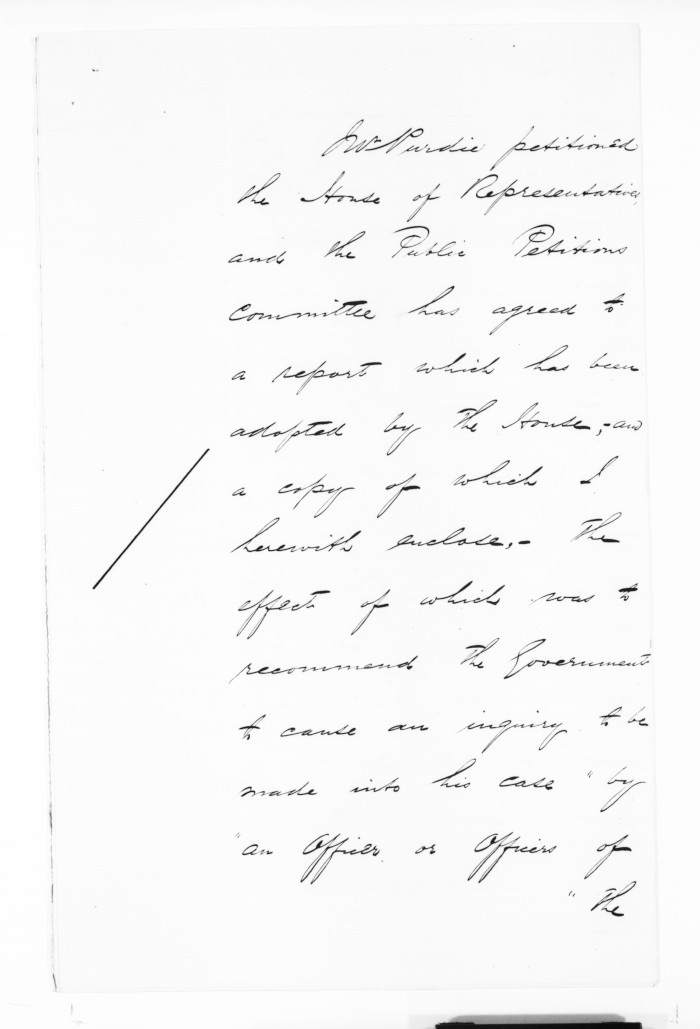 Mr Purdie petitioned
the House of Representatives,
and the Public Petitions
Committee has agreed to
a report which has been
adopted by the House,- and
a copy of which I
herewith enclose,- The
effect of which was to
recommend the Government
to cause an inquiry to be
made into his case "by
"an Officer or Officers of
"the